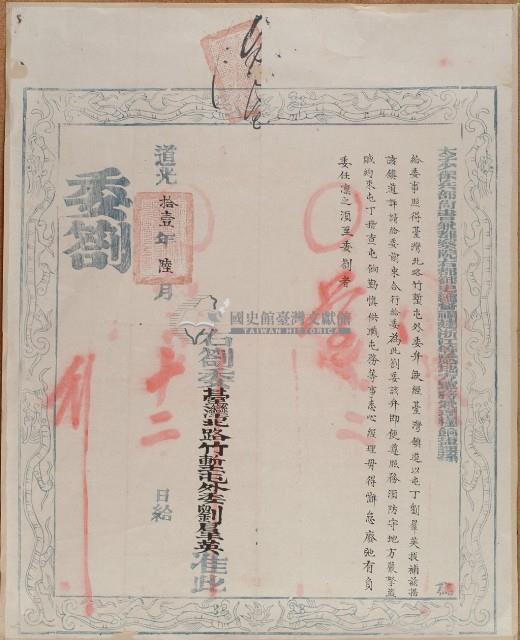 太子少保兵部尚書兼都察院右都御史總督福建浙江等處地方軍務兼理糧餉鹽課
給委事照得臺灣北路竹塹屯外委弁缺經臺灣鎮道以屯丁劉羣英拔補
該鎮道詳請給委前來合行給委為此劄委該弁即便遵照務須防守地方嚴緊
約束屯丁稽查屯餉勤慎供職屯務等事悉心經理毋得懈怠廢弛有負
委任凜之須至委劄者
右劄委臺灣北路竹塹屯外委劉羣英准此
道光拾壹年陸月十二日給
委劄
國史館臺灣文獻館
TAIWAN HISTORICA